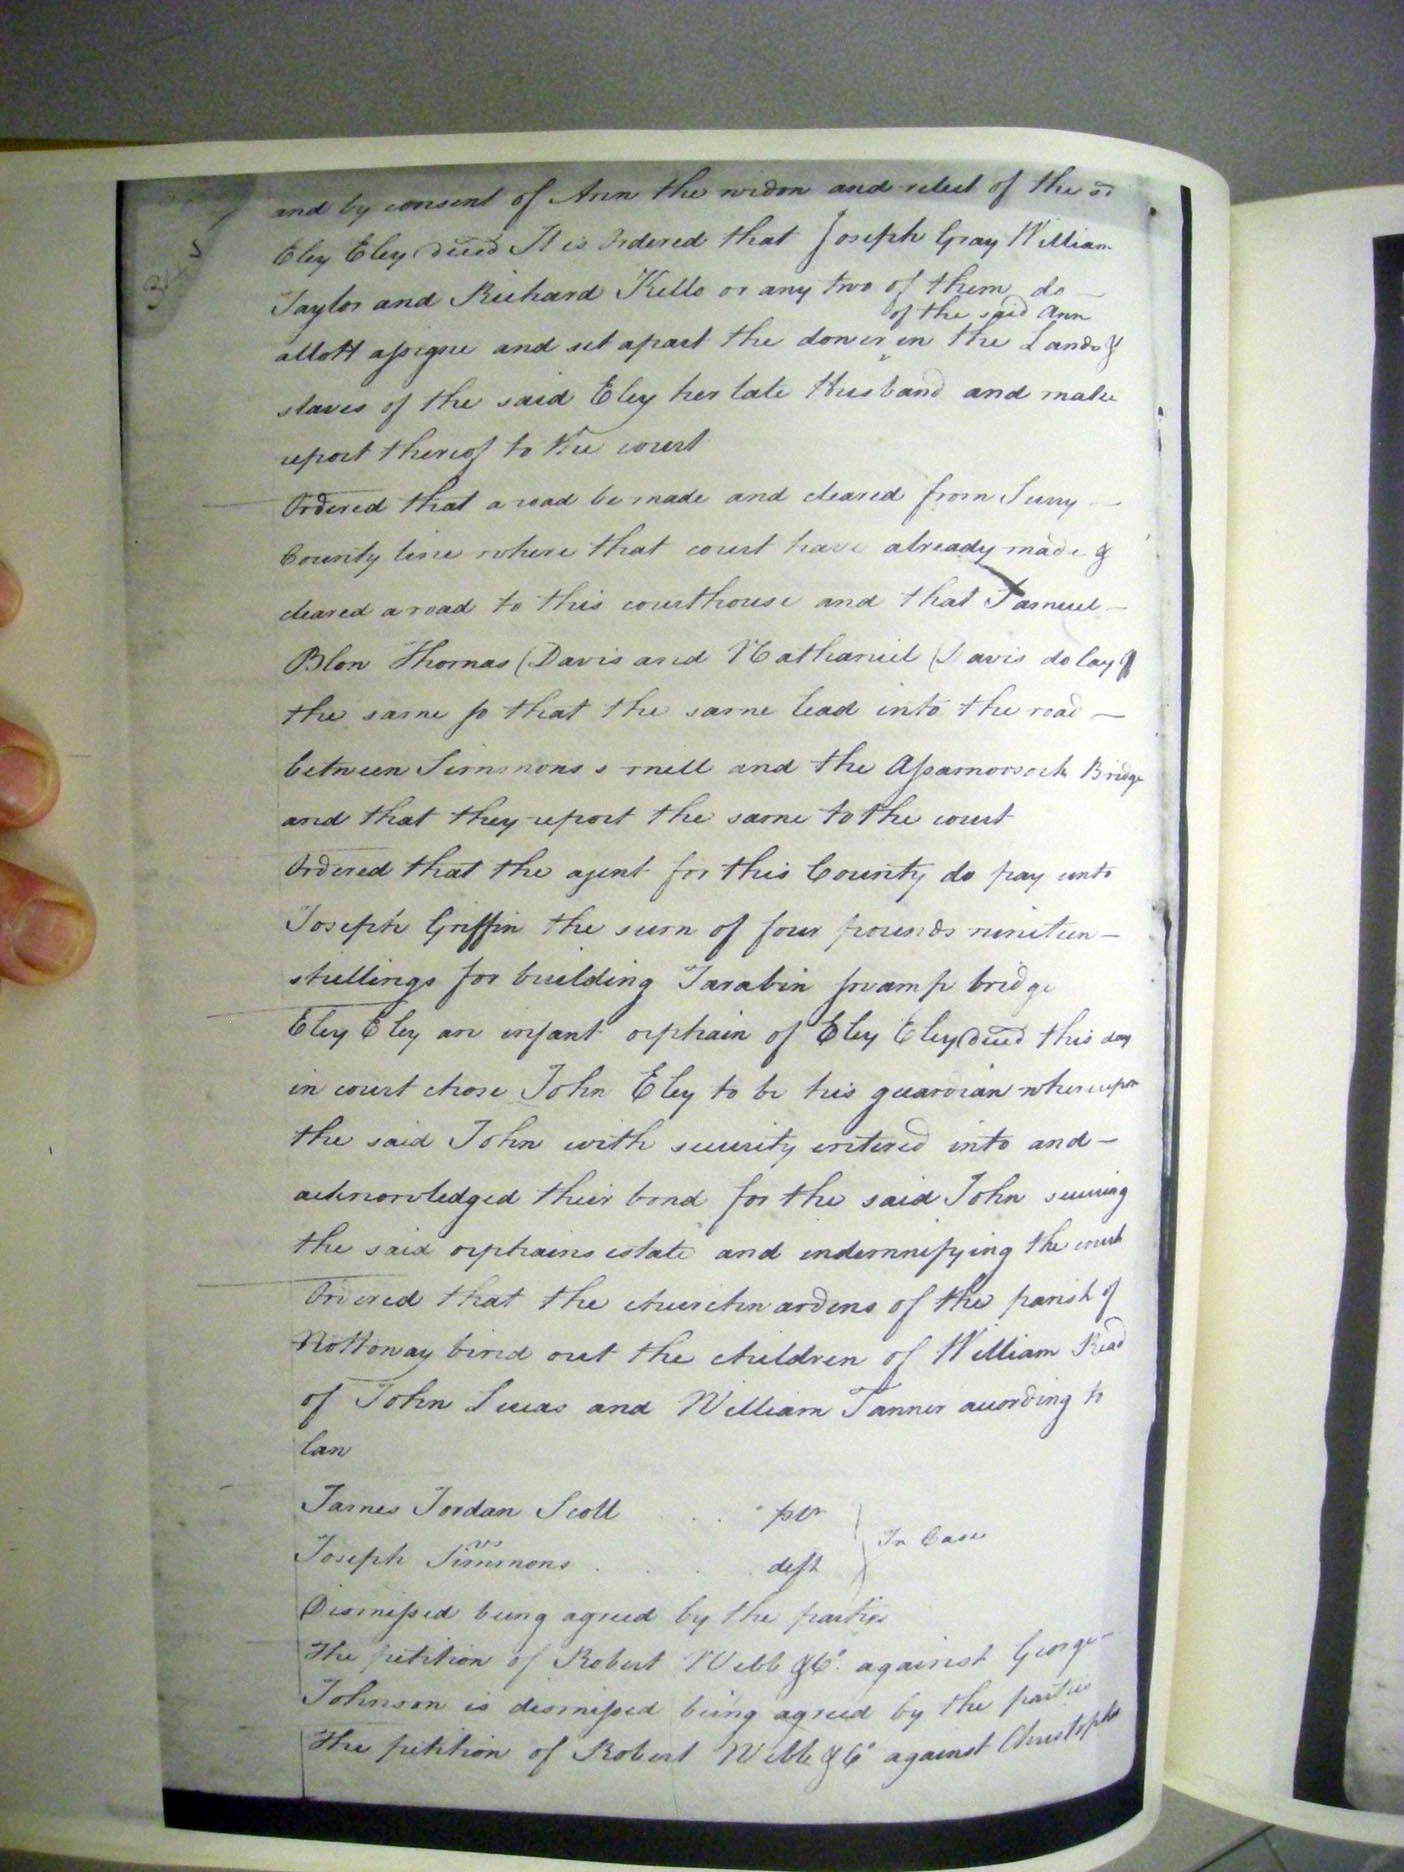 and by consent of Ann the widow and relect of the sd
Eley Eley decd It is Ordered that Joseph Gray William
Taylor and Richard Kello or any two of them do
of the said Ann
allott assigne and set apart the dower in the Lands &
slaves of the said Eley her late Husband and make
report thereof to the court
Ordered that a road be made and cleared from Surry
County line where that court have already made &
cleared a road to this courthouse and that Samuel
Blow Thomas Davis and Nathaniel Davis do lay
the same so that the same lead into the road
between Simmons s mill and the Assamoosock Bridge
and that they report the same to the court
Ordered that the agent for this County do pay unto
Joseph Griffin the sum of four pounds nineteen
shillings for building Tarabin swamp bridge
Eley Eley an infant orphain of Eley Eley decd this day
in court chose John Eley to be his guardian whereupon
the said John with security entered into and
acknowledged their bond for the said John securing
the said orphains estate and indemnifying the court
Ordered that the churchwardens of the parish of
Nottoway bind out the children of William Read
of John Lucas and William Tanner according to
law
James Jordan Scott pltr
vs
In Case
Joseph Simmons deft
Dismissed being agreed by the parties
The petition of Robert Webb & Co. against George
Johnson is dismissed being agreed by the parties
The petition of Robert Webb & Co against Christopher